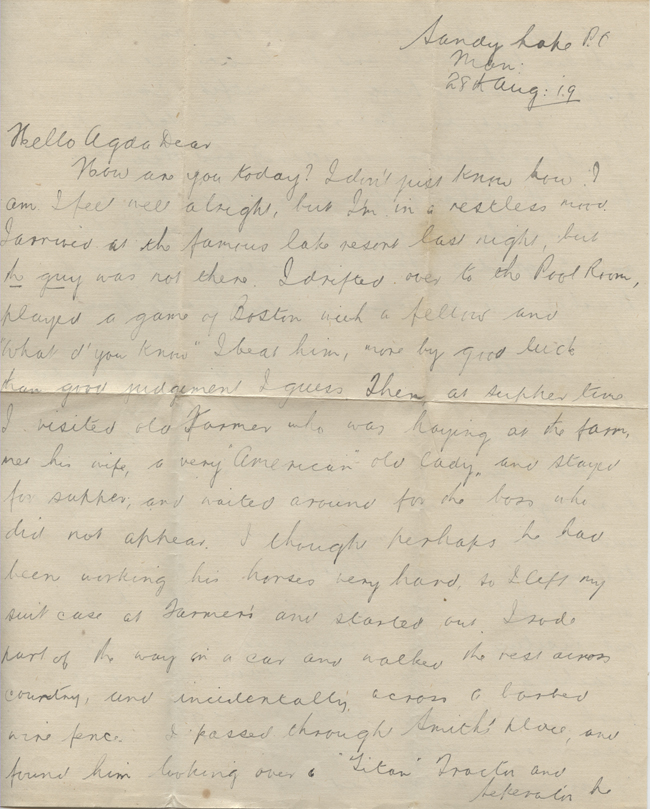 Sandy Lake P.O
Man:
28th Aug: 19
Hello Agda Dear
How are you today? I don't just know how I
am I feel well alright, but I'm in a restless mood.
I arrived at the famous lake resort last night, but
the guy was not there. I drifted over to the Pool Room,
played a game of Boston with a fellow and
"What d'you know" I beat him, more by good luck
than good judgement I guess. Then at supper time
I visited old Farmer who was haying at the farm,
met his wife, a very "American" old lady, and stayed
for supper, and waited around for the boss who
did not appear. I though perhaps he had
been working his horses very hard, so I left my
suit case at Farmer's and started out. I rode
part of the way in a car and walked the rest across
country, and incidentally, across a barbed
wire fence. I passed through Smith's place, and
found him looking over a "Titan" Tractor and
seperator he